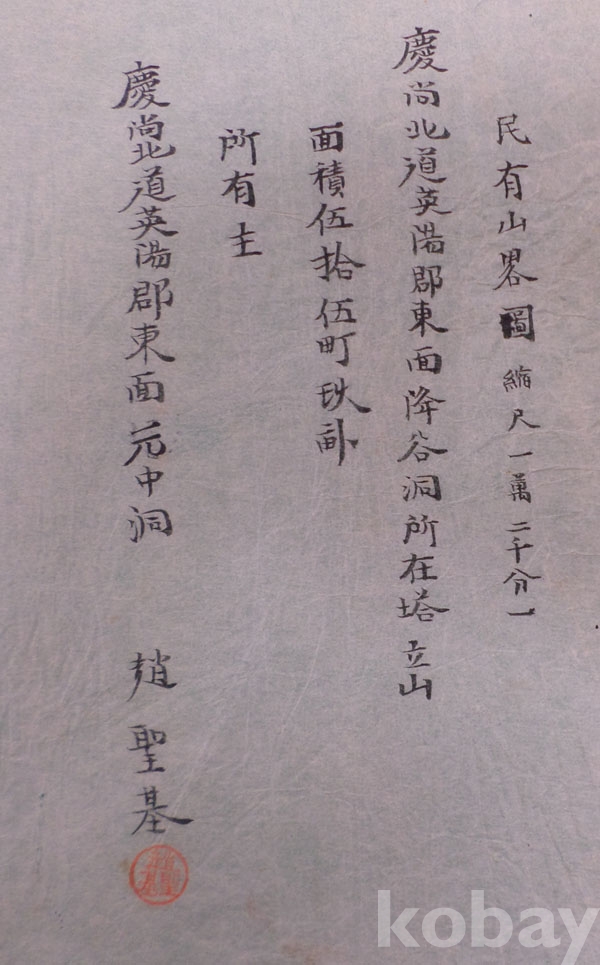 民有山畧圖 縮尺一萬二千分一
慶尚北道英陽郡東面降谷洞所在塔立山
面積伍拾伍町玖畝
所有主
慶尚北道英陽郡東面元中洞 趙聖基
kobay